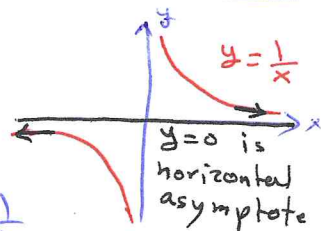 y
y = 1/x
x
y=0 is
horizontal
asymptote